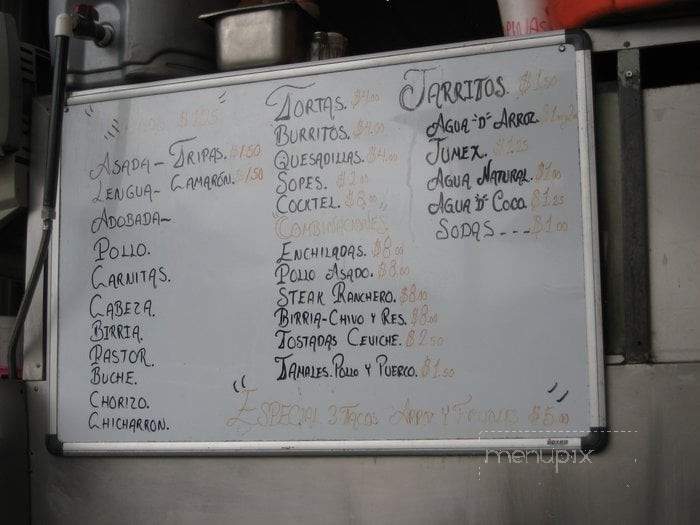 $1.25
ASADA - TRIPAS. $1.50
LENGUA - CAMARÓN. $1.50
ADOBADA -
POLLO.
CARNITAS.
CABEZA.
BIRRIA.
PASTOR.
BUCHE.
CHORIZO.
CHICHARRON.
TORTAS. $4.00
BURRITOS. $4.00
QUESADILLAS. $4.00
SOPES. $2.00
COCKTEL. $8.00
"COMBINACIONES"
ENCHILADAS. $8.00
POLLO ASADO. $8.00
STEAK RANCHERO. $8.00
BIRRIA - CHIVO Y RES. $8.00
TOSTADAS CEVICHE. $2.50
TAMALES. POLLO Y PUERCO. $1.50
JARRITOS. $1.50
AGUA "D" ARROZ.
JUMEX. $1.25
AGUA NATURAL. $1.00
AGUA "D" COCO. $1.25
SODAS - - - $1.00
"ESPECIAL 3 TACOS ARROZ Y FRIJOLES $5.00"
menupix